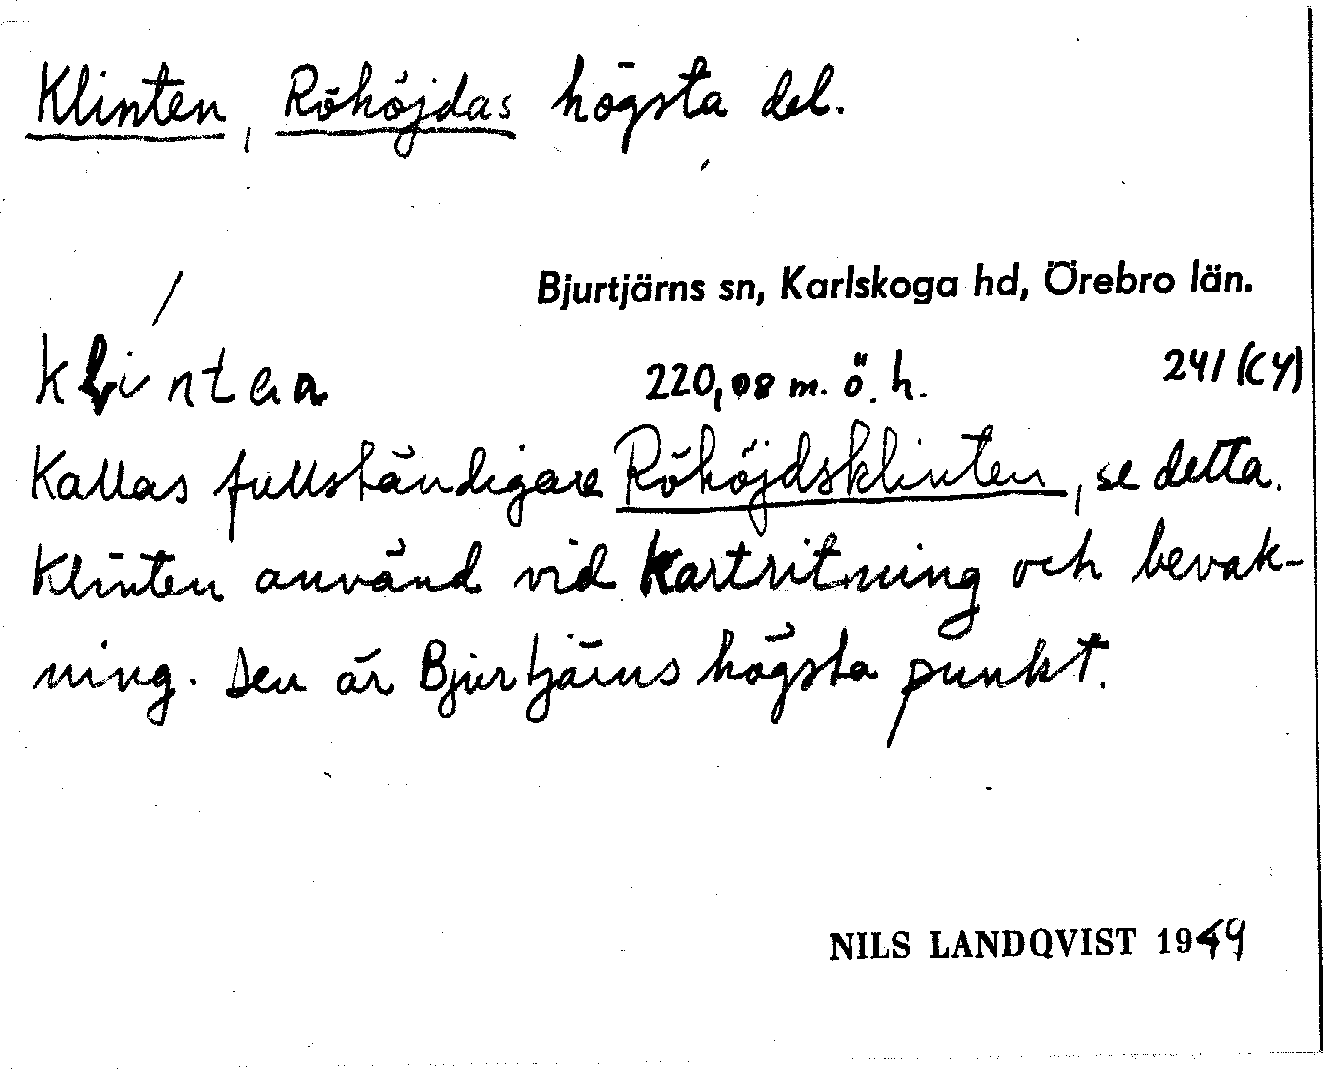 Klinten, Röhöjdas högsta del.
Bjurtjärns sn, Karlskoga hd, Örebro län.
klintan 220,08 m. ö. h. 241 (CY)
Kallas fullständigare Röhöjdsklinten, se detta.
Klinten använd vid kartritning och bevak-
ning. Den är Bjurtjärns högsta punkt.
NILS LANDQVIST 1949